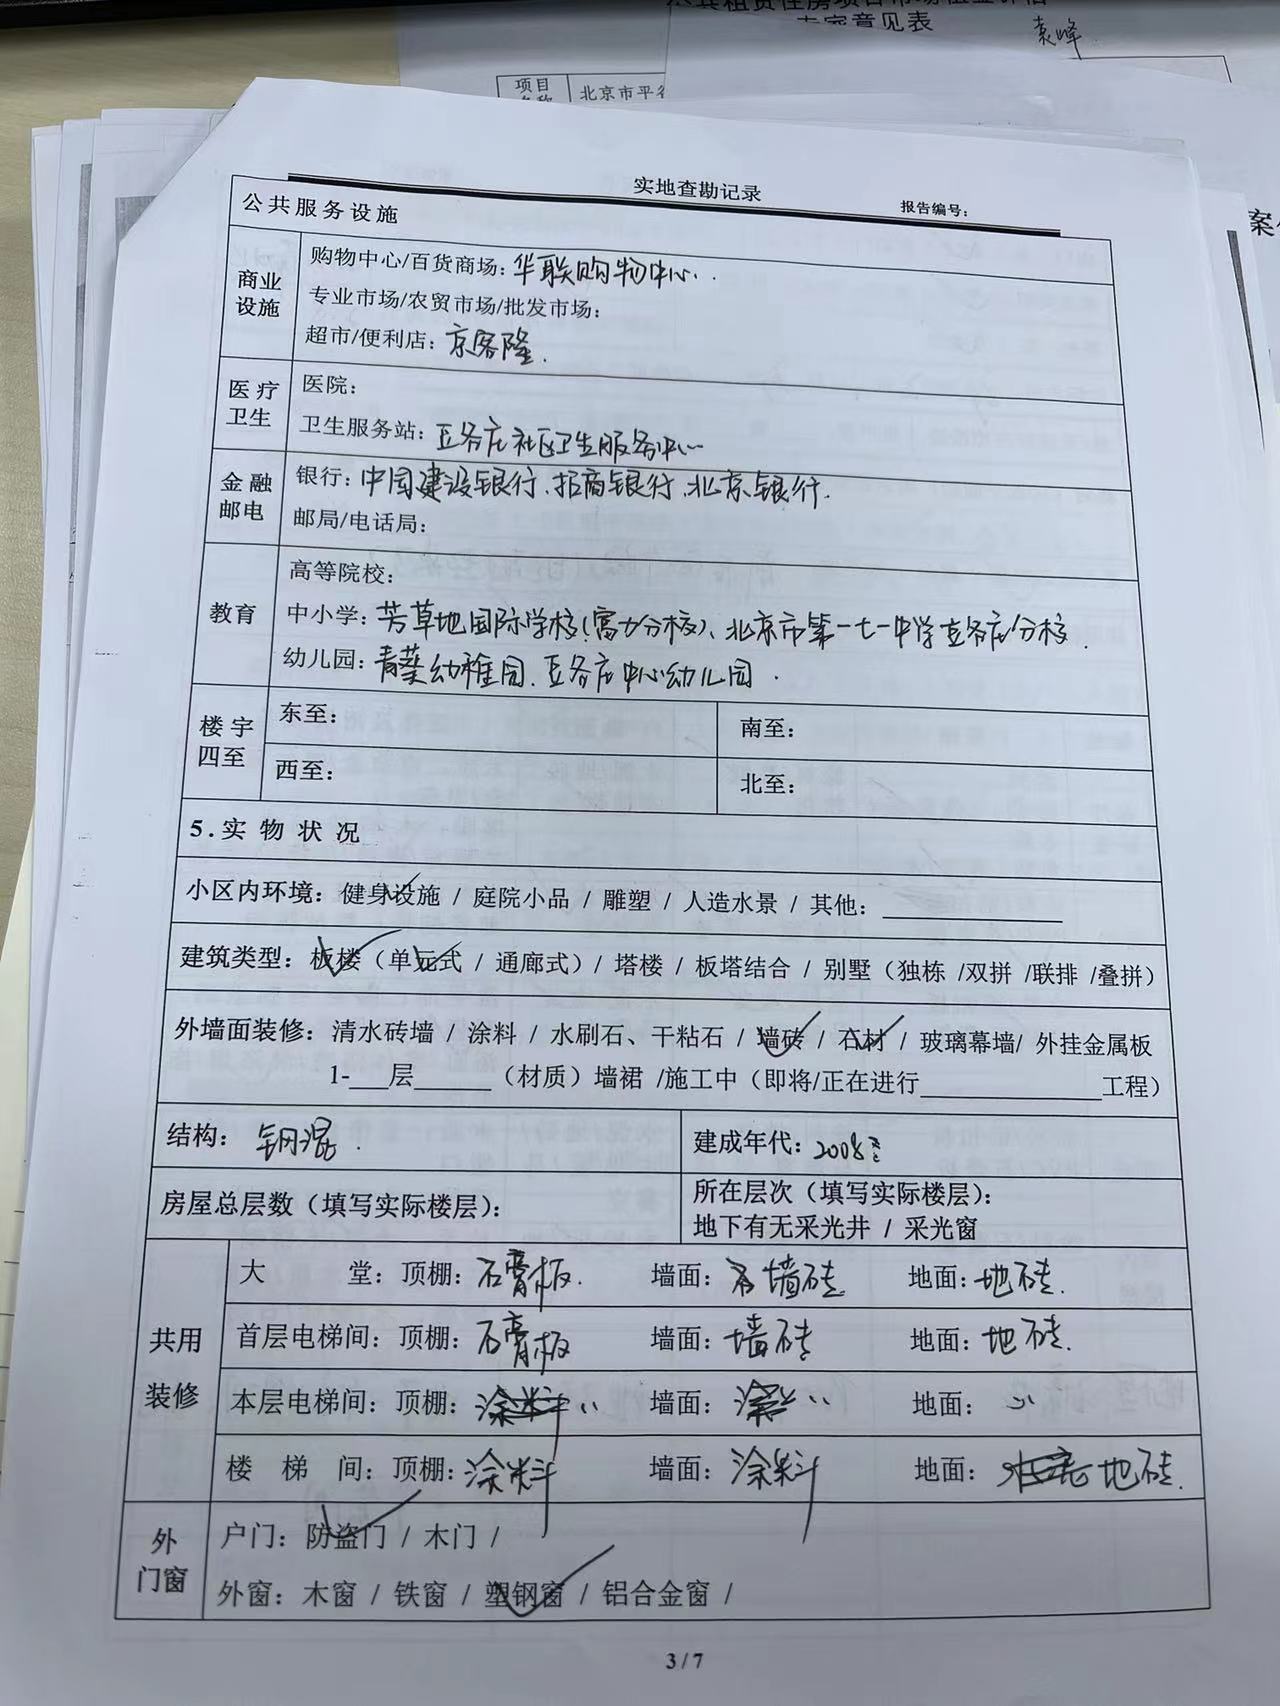 公共租赁住房项目市场租金评估
专家意见表
袁峰
项目
名称
北京市平谷
案
实地查勘记录
报告编号：
公共服务设施
商业设施
购物中心/百货商场：华联购物中心．
专业市场/农贸市场/批发市场：
超市/便利店：京客隆．
医疗卫生
医院：
卫生服务站：豆各庄社区卫生服务中心
金融邮电
银行：中国建设银行、招商银行、北京银行．
邮局/电话局：
教育
高等院校：
中小学：芳草地国际学校（富力分校）、北京市第一七一中学豆各庄分校．
幼儿园：青葵幼稚园、豆各庄中心幼儿园．
楼宇四至
东至：
南至：
西至：
北至：
5.实物状况
小区内环境：健身设施 / 庭院小品 / 雕塑 / 人造水景 / 其他：________
建筑类型：板楼（单元式 / 通廊式）/ 塔楼 / 板塔结合 / 别墅（独栋 /双拼 /联排 /叠拼）
外墙面装修：清水砖墙 / 涂料 / 水刷石、干粘石 / 墙砖 / 石材 / 玻璃幕墙/ 外挂金属板
1-___层______（材质）墙裙 /施工中（即将/正在进行________工程）
结构：钢混．
建成年代：2008
房屋总层数（填写实际楼层）：
所在层次（填写实际楼层）：
地下有无采光井 / 采光窗
共用装修
大堂：顶棚：石膏板． 墙面：墙砖 地面：地砖．
首层电梯间：顶棚：石膏板 墙面：墙砖 地面：地砖．
本层电梯间：顶棚：涂料 〃 墙面：〃 地面：〃
楼梯间：顶棚：涂料 墙面：涂料 地面：地砖．
外门窗
户门：防盗门 / 木门 /
外窗：木窗 / 铁窗 / 塑钢窗 / 铝合金窗 /
3 / 7